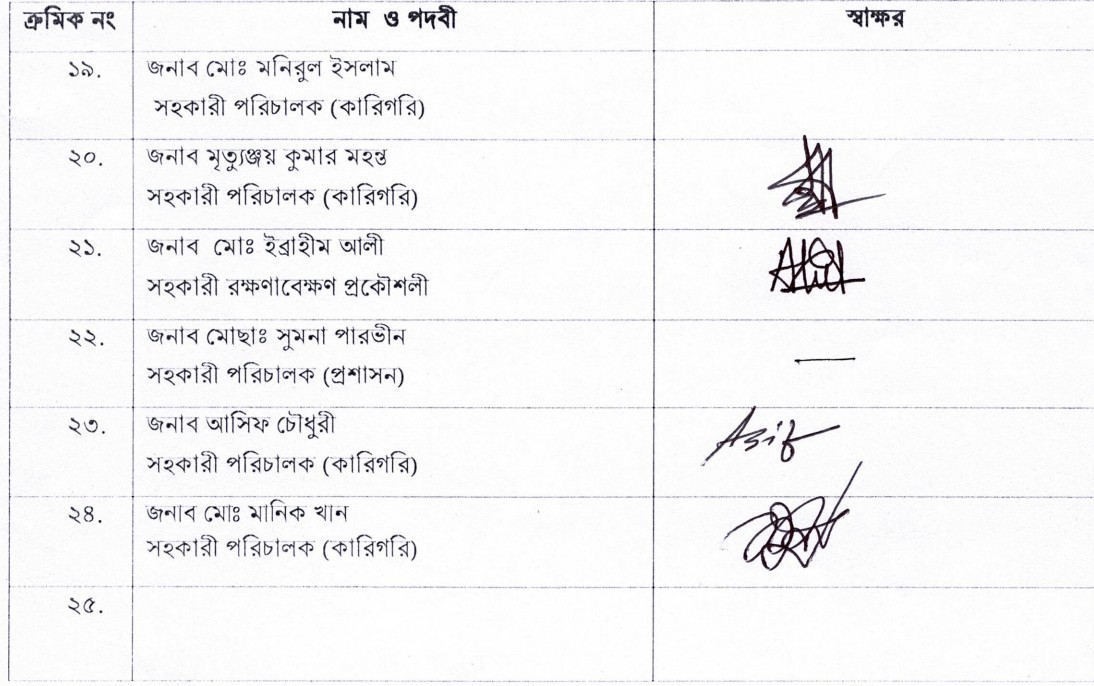 ক্রমিক নং নাম ও পদবী স্বাক্ষর
১৯. জনাব মোঃ মনিরুল ইসলাম
সহকারী পরিচালক (কারিগরি)
২০. জনাব মৃত্যুঞ্জয় কুমার মহন্ত
সহকারী পরিচালক (কারিগরি)
২১. জনাব মোঃ ইব্রাহীম আলী
সহকারী রক্ষণাবেক্ষণ প্রকৌশলী
২২. জনাব মোছাঃ সুমনা পারভীন
সহকারী পরিচালক (প্রশাসন)
২৩. জনাব আসিফ চৌধুরী Asif
সহকারী পরিচালক (কারিগরি)
২৪. জনাব মোঃ মানিক খান
সহকারী পরিচালক (কারিগরি)
২৫.